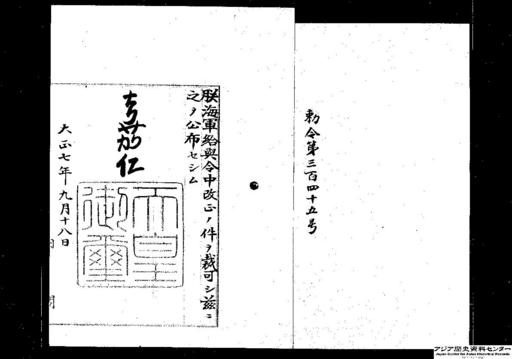 勅令第三百四十五号
朕海軍給與令中改正ノ件ヲ裁可シ茲ニ
之ヲ公布セシム
嘉仁
天皇御璽
大正七年九月十八日
アジア歴史資料センター
Japan Center for Asian Historical Records